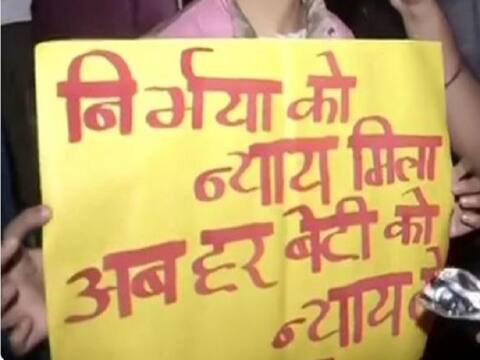 निर्भया को
न्याय मिला
अब हर बेटी को
न्याय